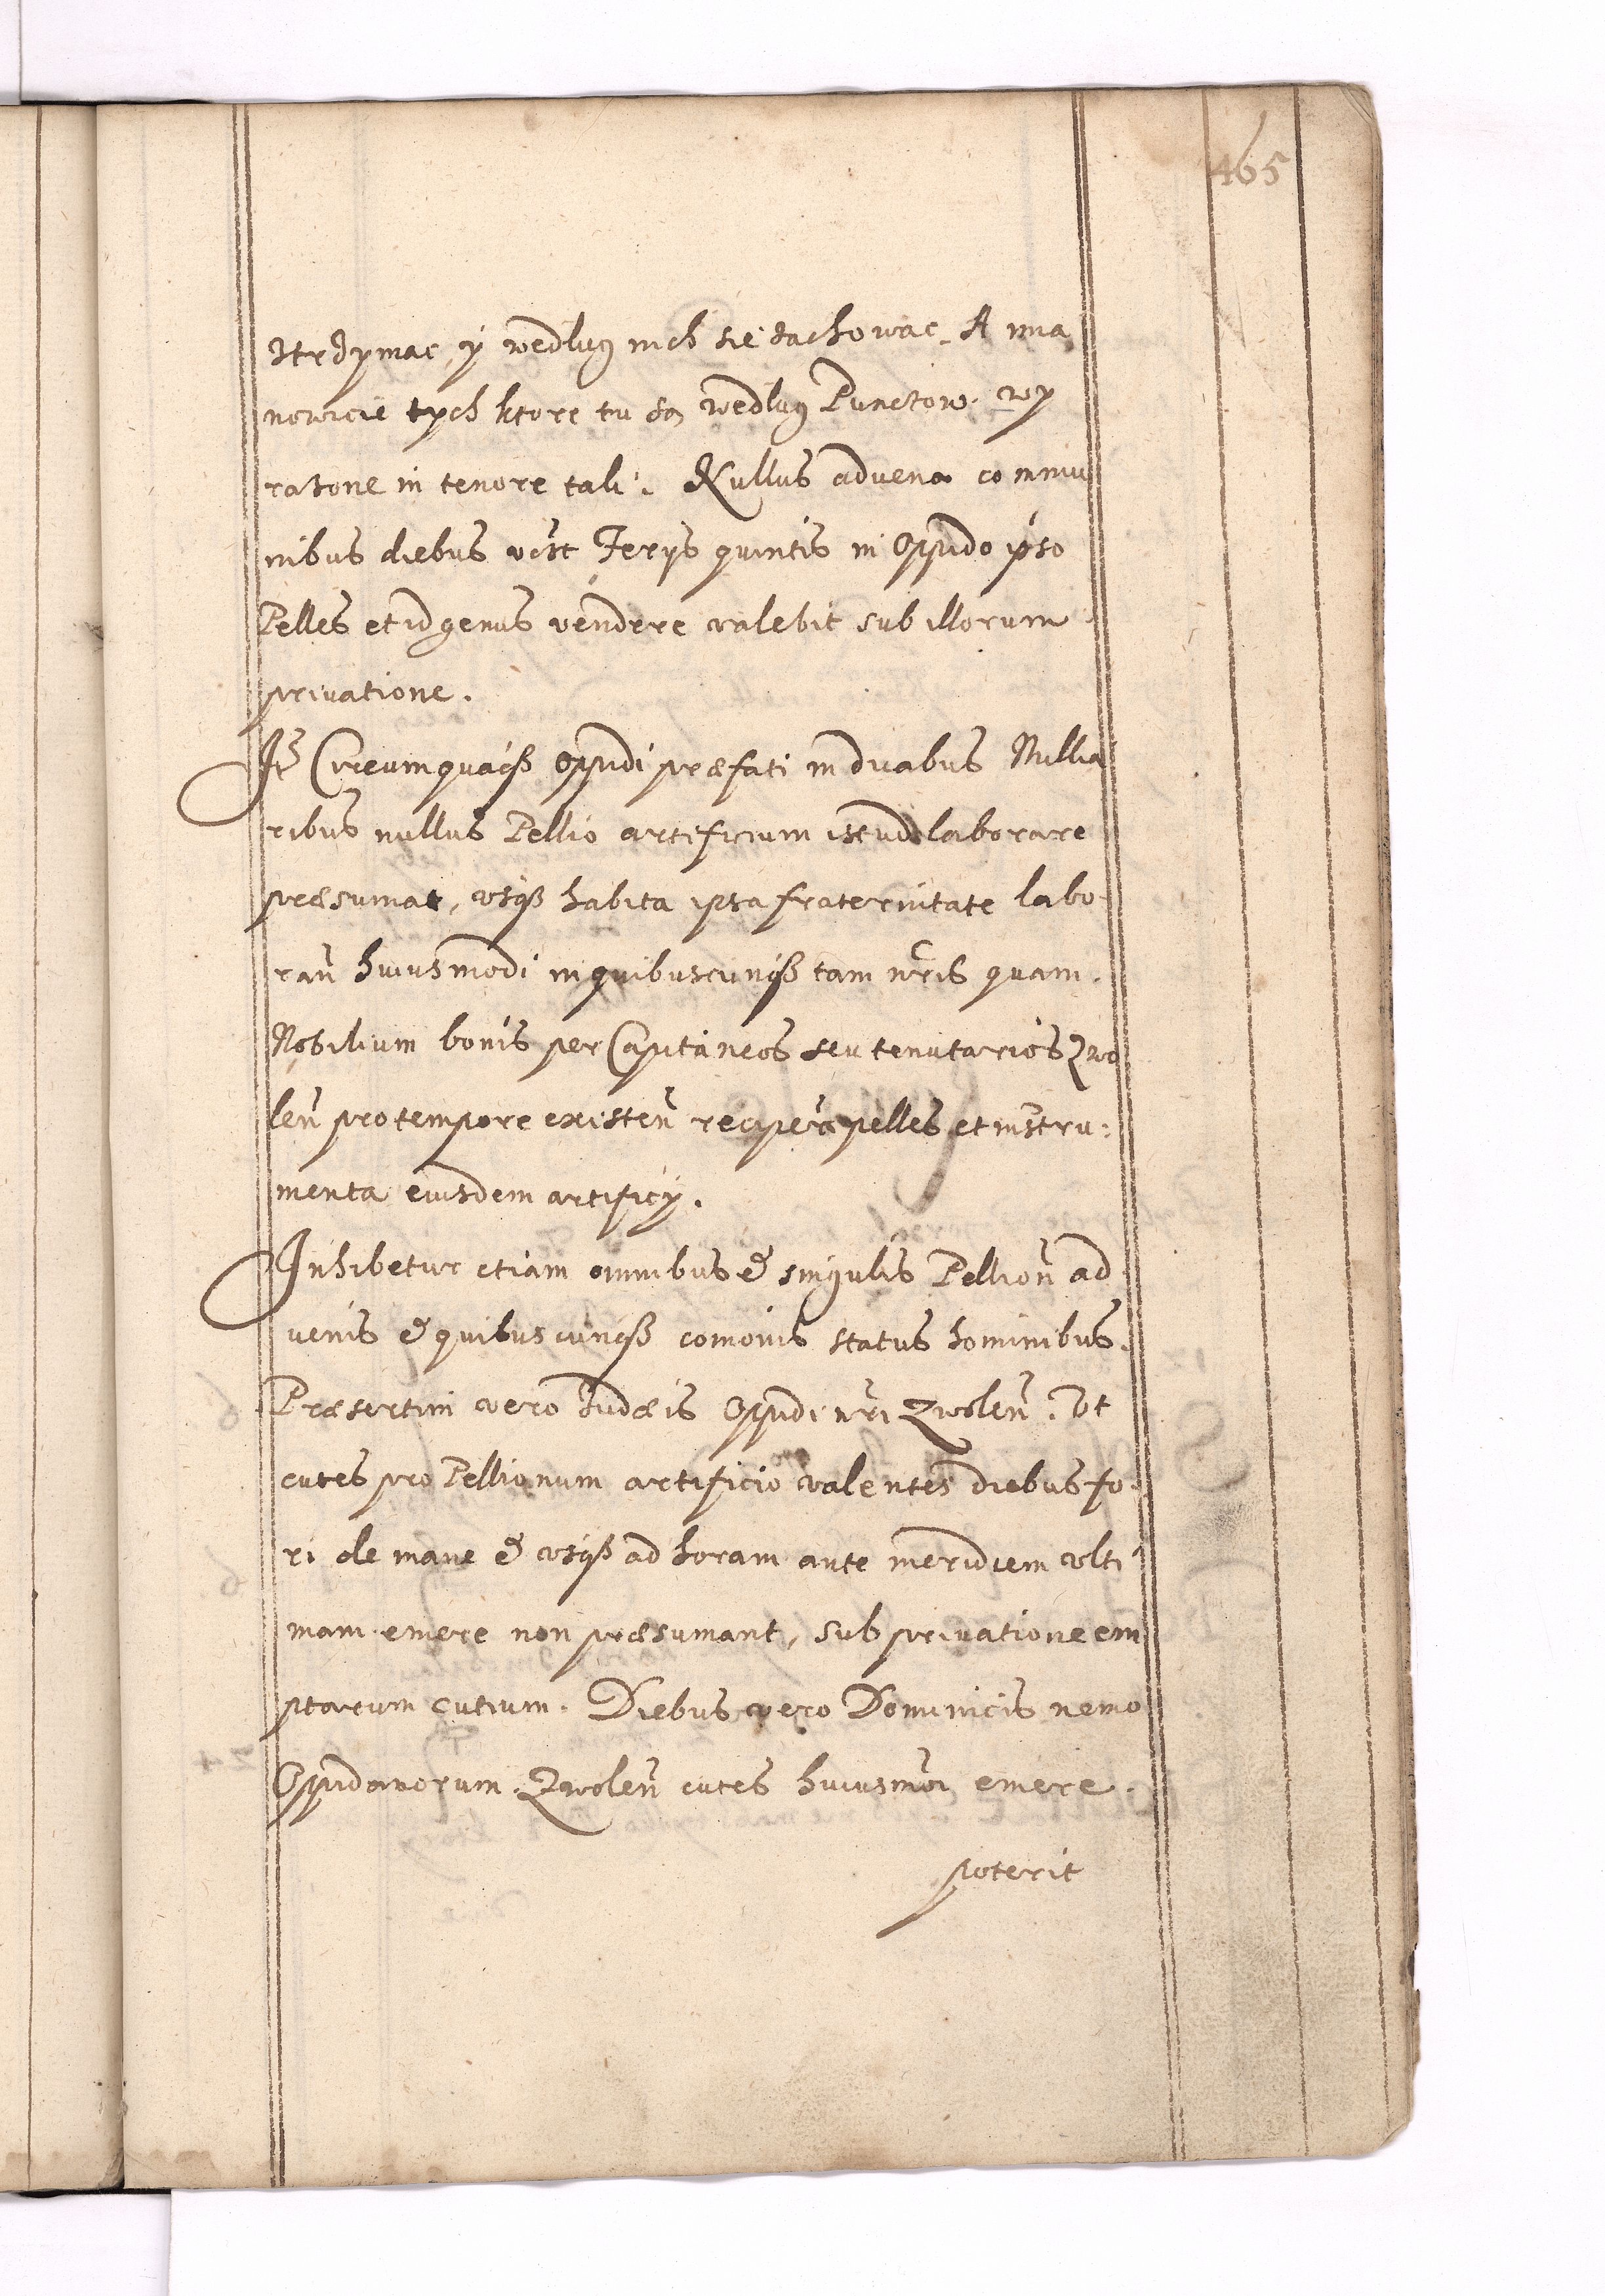 465
strzymac, y wedlug nich się zachowac. A mia
nowicie tych ktore tu są wedlug Punctow wy
razone in tenore tali. Nullus advena commu
nibus diebus videlt Ferys quintis in Oppido ipso
Pelles et id genus véndere valebit sub illorum
privatione.
Itē Circumquaqꝫ Oppidi præfati in duabus Millia
ribus nullus Pellio artificium istud laborare
præsumat, usqꝫ habita ipsa fraternitate labo
ran̄ huiusmodi in quibuscunqꝫ tam nr̄is quam
Nobilium bonis per Capitaneos seu tenutarios Zwo
len̄ pro tempore existen̄ reciper pelles et instru:
menta eiusdem artificÿ.
Inhibetur etiam omnibus & singulis Pellion̄ ad
venis & quibuscunqꝫ comonis status hominibus.
Præsertim vero Judæis Oppidi nr̄i Zwolen̄. Ut
cutes pro Pellionum artificio valentes diebus fo
ri de mane & usqꝫ ad horam ante meridiem ulti
mam emere non præsumant, sub privatione em
ptarum cutium. Diebus vero Dominicis nemo
Oppidanorum Zwolen̄ cutes huiusmōi emere
poterit